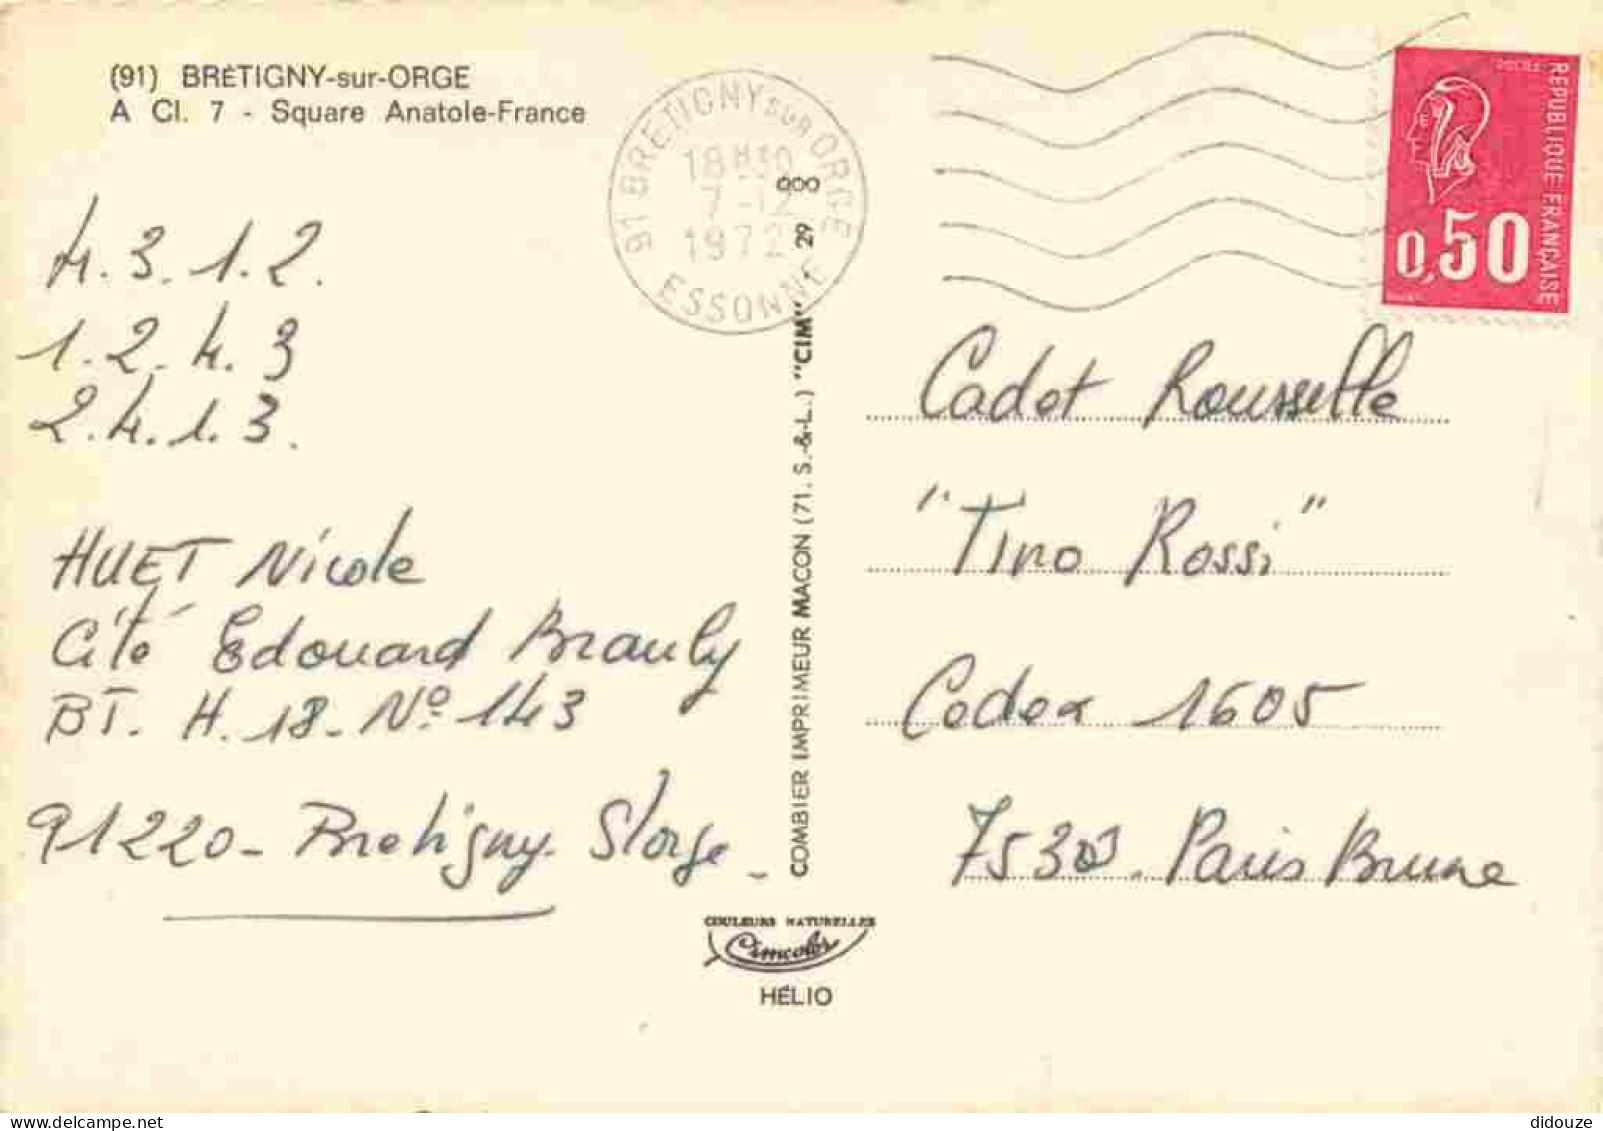 (91) BRÉTIGNY-sur-ORGE
A Cl. 7 - Square Anatole-France
4. 3. 1. 2.
1. 2. 4. 3
2. 4. 1. 3.
HUET Nicole
Cité Edouard Branly
BT. H. 18. No. 143
91220 - Bretigny S/orge -
91 BRETIGNY SUR ORGE
18H30
7-12
1972
ESSONNE
COMBIER IMPRIMEUR MACON (71. S.-&-L.) "CIM"
29
COULEURS NATURELLES
Cimcolor
HÉLIO
REPUBLIQUE FRANÇAISE
POSTES
0,50
Cadet Rousselle
"Tino Rossi"
Cedex 1605
75303. Paris Brune
didouze